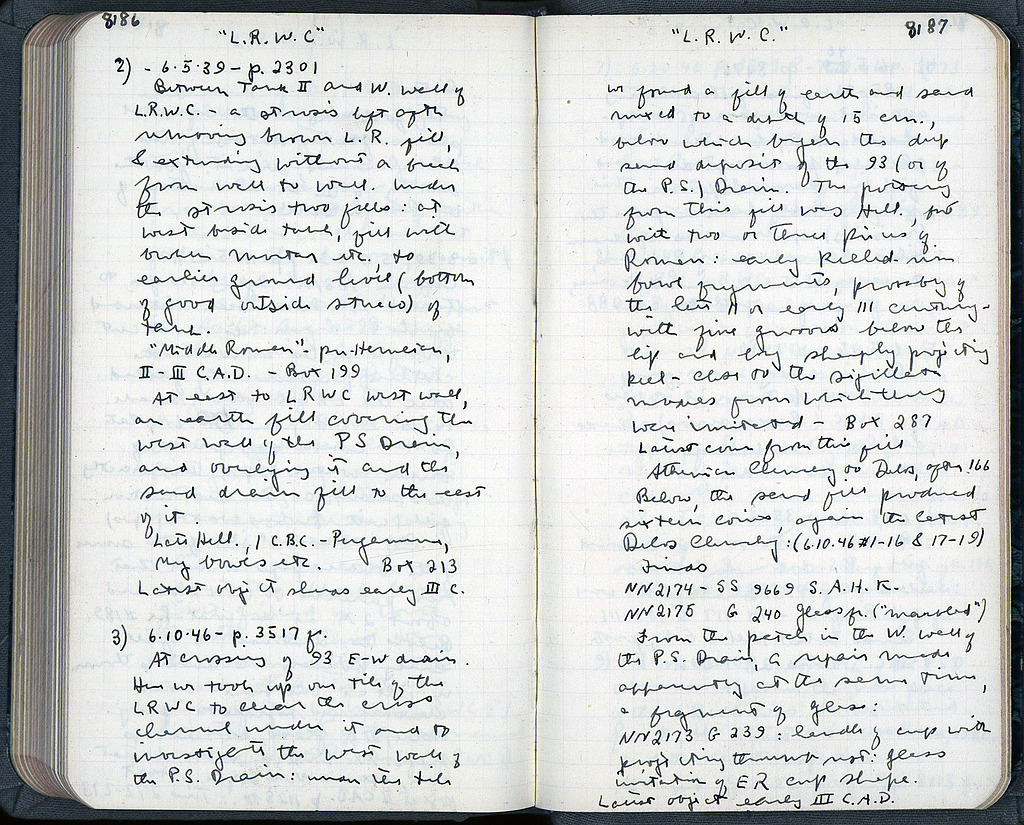 8186
"L.R.W.C"
2) - 6.5.39 - p. 2301
Between Tank II and W. wall of
L.R.W.C. - a strosis left after
removing brown L.R. fill,
& extending without a break
from wall to wall. Under
the strosis two fills: at
west beside tank, fill with
broken mortar etc. to
earlier ground level (bottom
of good outside stucco) of
tank.
"Middle Roman" - pre-Herulian,
II-III C.A.D. - Box 199
At east to LRWC west wall,
an earth fill covering the
west wall of the PS Drain,
and overlying it and the
sand drain fill to the east
of it
Late Hell., I C.B.C. - Pergamene,
Meg bowls etc. Box 213
Latest object sherds early III C.
3) 6.10.46 - p. 3517 ff.
At crossing of 93 E-W drain.
Here we took up one tile of the
LRWC to clear the cross
channel under it and to
investigate the west wall of
the P.S. Drain: under the tile
8187
"L.R.W.C."
we found a fill of earth and sand
mixed to a depth of 15 cm.,
below which began the deep
sand deposit of the 93 (or of
the P.S.) Drain. The pottery
from this fill was Hell. but
with two or three pieces of
Roman: early keeled rim
bowl fragments, probably of
the late II or early III century -
with fine grooves below the
lip and long sharply projecting
keel - close to the sigillata
models from which they
were imitated - Box 287
Latest coin from this fill
Athenian Cleruchy on Delos, after 166
Below, the sand fill produced
sixteen coins again the latest
Delos Cleruchy: (6.10.46 #1-16 & 17-19)
Finds
NN2174 - SS 9669 S.A.H.K.
NN2175 G 240 glass fr. ("marbled")
From the patch in the W. wall of
the P.S. Drain, a repair made
apparently at the same time,
a fragment of glass:
NN2173 G 239: handle of cup with
projecting thumb rest: glass
imitation of ER cup shape.
Latest object early III C.A.D.